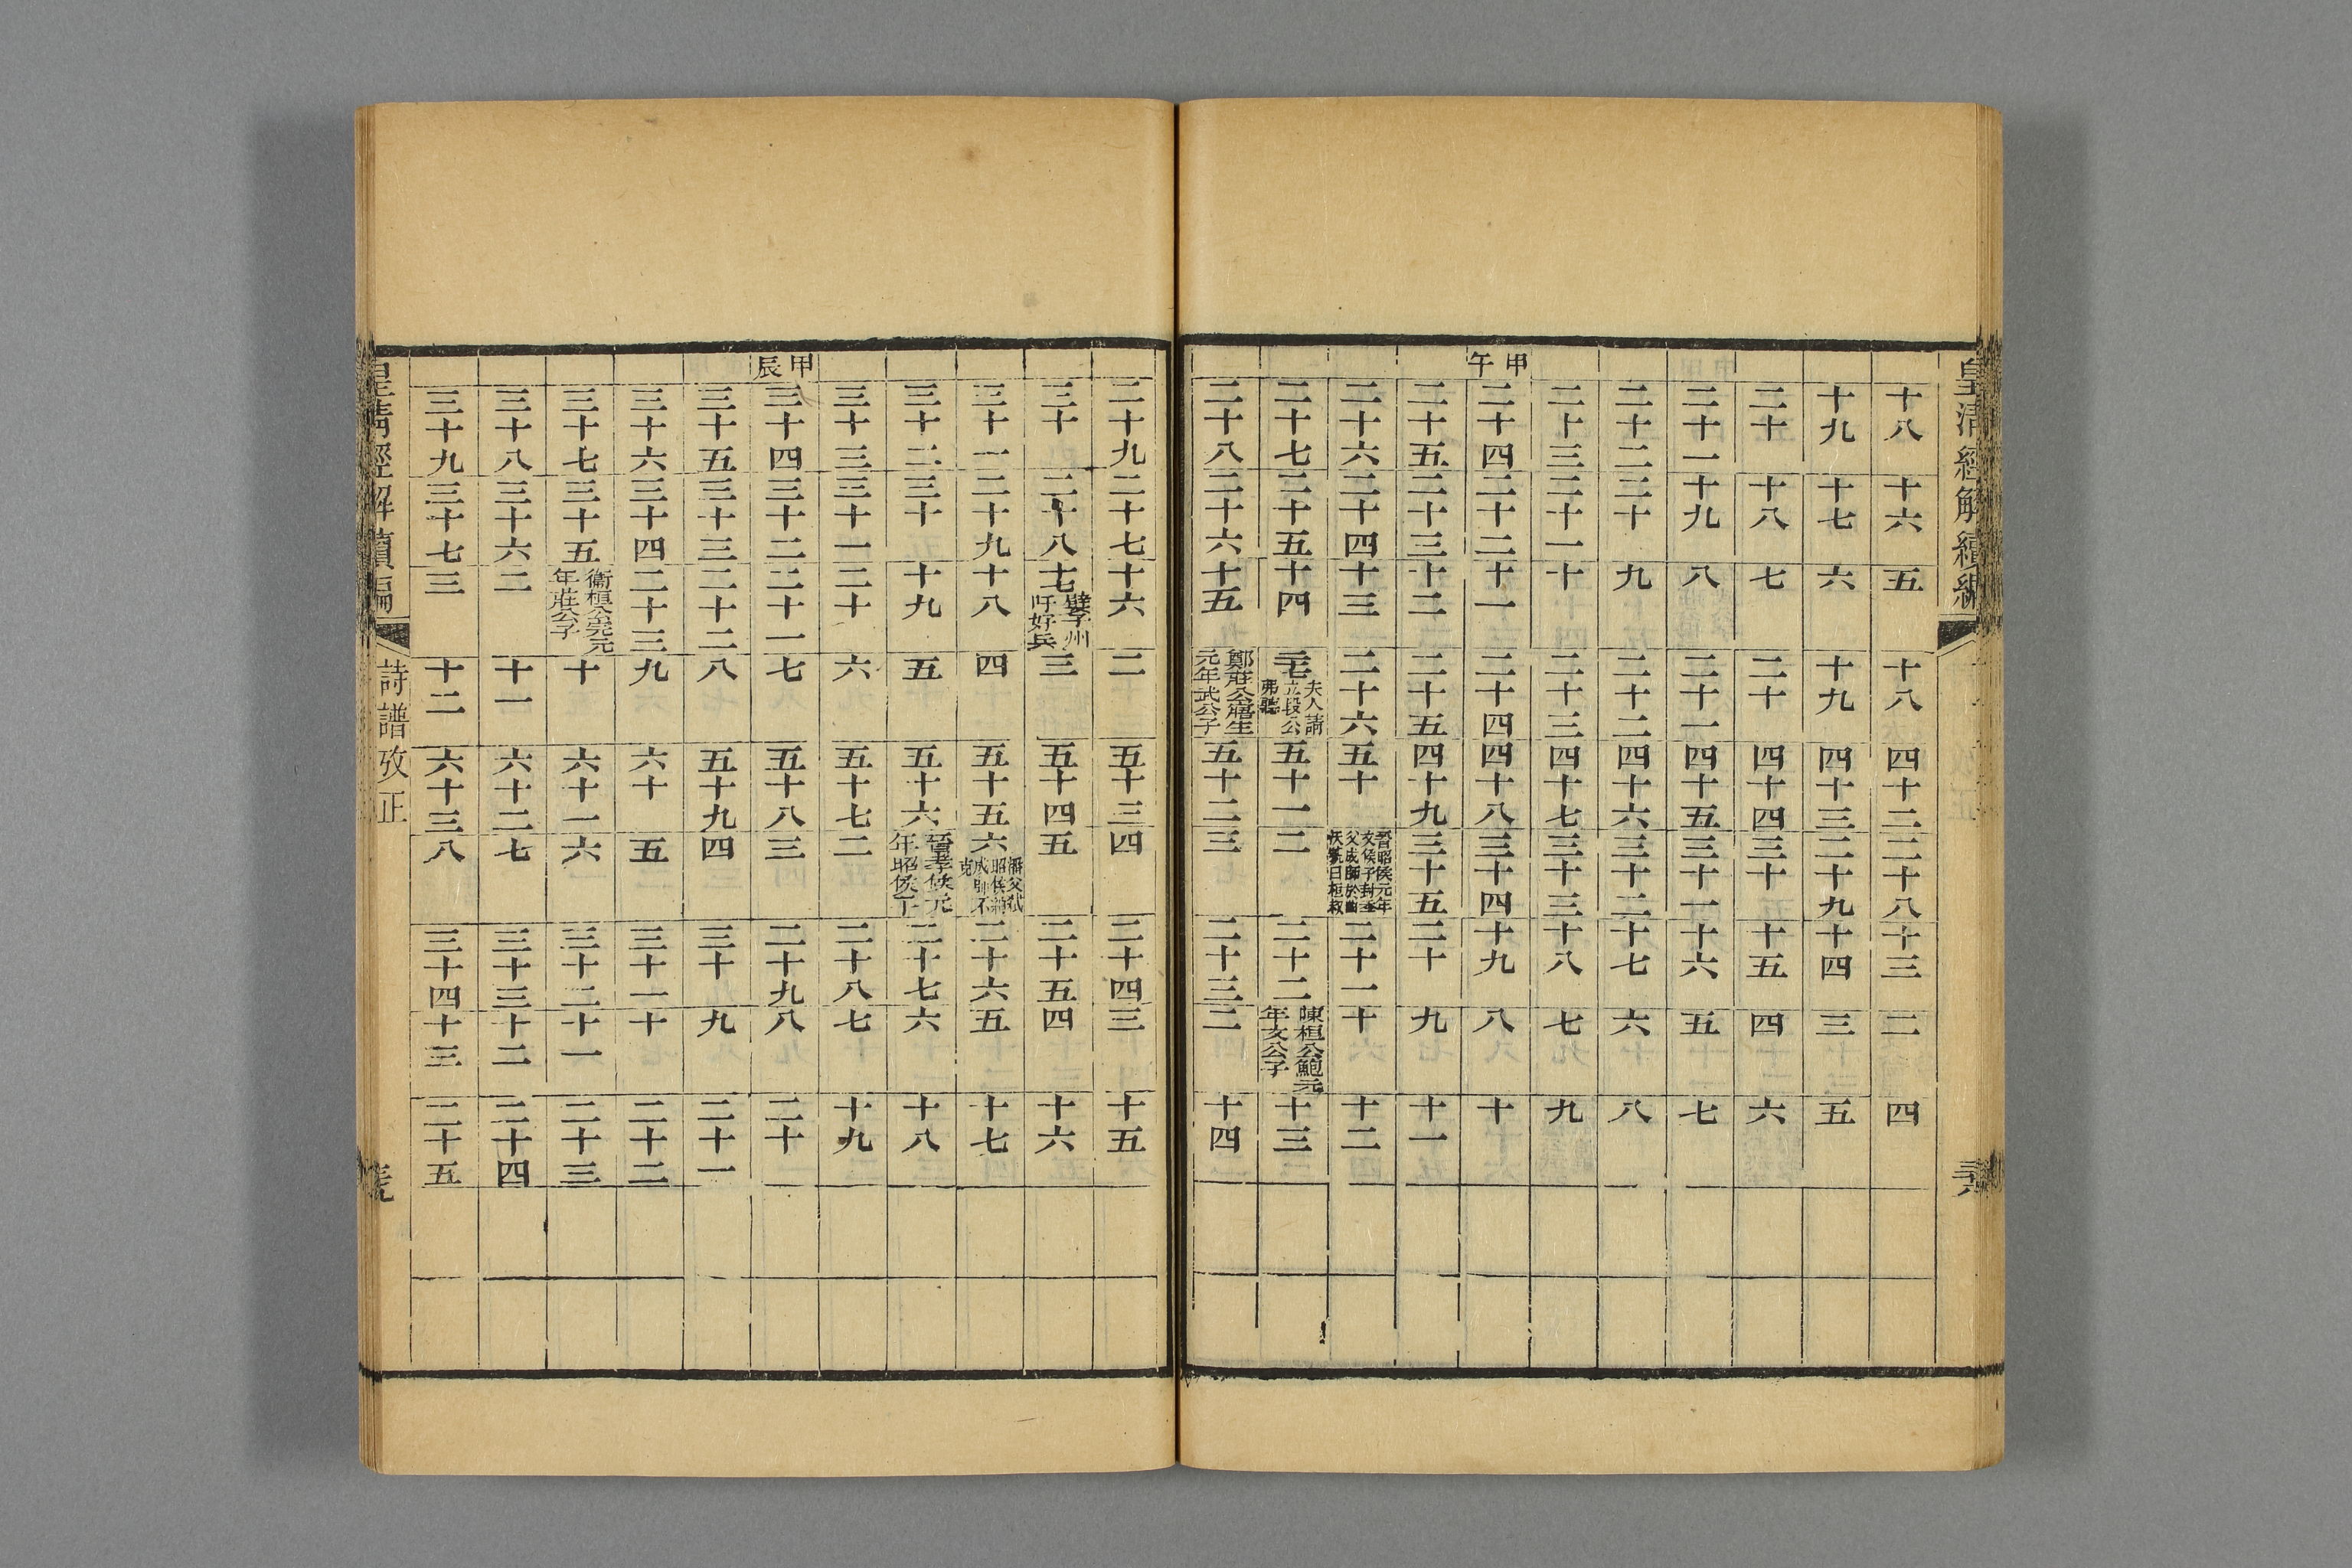 皇清經解續編
十八 十六 五 十八 四十二 二十八 十三 二 四
十九 十七 六 十九 四十三 二十九 十四 三 五
二十 十八 七 二十 四十四 三十 十五 四 六
二十一 十九 八 二十一 四十五 三十一 十六 五 七
二十二 二十 九 二十二 四十六 三十二 十七 六 八
二十三 二十一 十 二十三 四十七 三十三 十八 七 九
甲午 二十四 二十二 十一 二十四 四十八 三十四 十九 八 十
二十五 二十三 十二 二十五 四十九 三十五 二十 九 十一
二十六 二十四 十三 二十六 五十 晉昭侯元年文侯子封季父成師於曲沃號曰桓叔 二十一 十 十二
二十七 二十五 十四 二七夫人請立段公弗聽 五十一 二 二十二 陳桓公鮑元年文公子 十三
二十八 二十六 十五 鄭莊公寤生元年武公子 五十二 三 二十三 二 十四
二十九 二十七 十六 二 五十三 四 二十四 三 十五
三十 二十八 十七嬖子州吁好兵 三 五十四 五 二十五 四 十六
三十一 二十九 十八 四 五十五 六潘父弒昭侯納成師不克 二十六 五 十七
三十二 三十 十九 五 五十六 晉孝侯元年昭侯子 二十七 六 十八
三十三 三十一 二十 六 五十七 二 二十八 七 十九
甲辰 三十四 三十二 二十一 七 五十八 三 二十九 八 二十
三十五 三十三 二十二 八 五十九 四 三十 九 二十一
三十六 三十四 二十三 九 六十 五 三十一 十 二十二
三十七 三十五 衞桓公完元年莊公子 十 六十一 六 三十二 十一 二十三
三十八 三十六 二 十一 六十二 七 三十三 十二 二十四
三十九 三十七 三 十二 六十三 八 三十四 十三 二十五
皇清經解續編 詩譜攷正